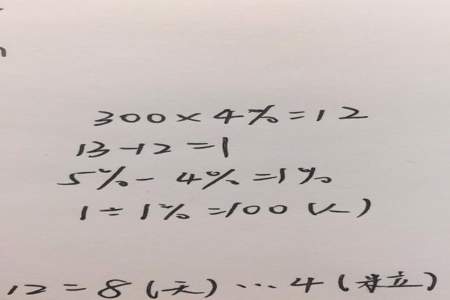 300×4%=12
13-12=1
5%-4%=1%
1÷1%=100(人)
12=8(天)…4(粒)